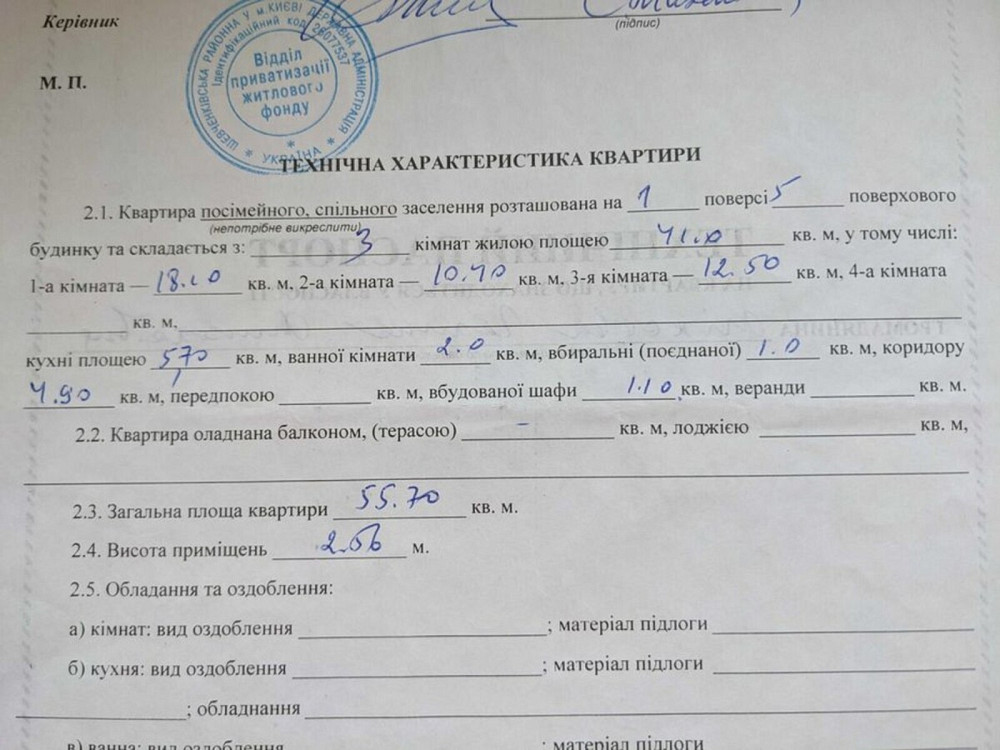 Керівник
(підпис)
М. П.
ШЕВЧЕНКІВСЬКА РАЙОННА У м.КИЄВІ ДЕРЖАВНА АДМІНІСТРАЦІЯ
Ідентифікаційний код 26077537
Відділ
приватизації
житлового
фонду
* УКРАЇНА *
ТЕХНІЧНА ХАРАКТЕРИСТИКА КВАРТИРИ
2.1. Квартира посімейного, спільного заселення розташована на 1 поверсі 5 поверхового
(непотрібне викреслити)
будинку та складається з: 3 кімнат жилою площею 41.0 кв. м, у тому числі:
1-а кімната — 18.10 кв. м, 2-а кімната — 10.40 кв. м, 3-я кімната — 12.50 кв. м, 4-а кімната
кв. м,
кухні площею 5,70 кв. м, ванної кімнати 2.0 кв. м, вбиральні (поєднаної) 1.0 кв. м, коридору
4.90 кв. м, передпокою кв. м, вбудованої шафи 1.10 кв. м, веранди кв. м.
2.2. Квартира оладнана балконом, (терасою) – кв. м, лоджією кв. м,
2.3. Загальна площа квартири 55.70 кв. м.
2.4. Висота приміщень м.
2.5. Обладання та оздоблення:
а) кімнат: вид оздоблення ; матеріал підлоги
б) кухня: вид оздоблення ; матеріал підлоги
; обладнання
в) ванна: вид оздоблення ; матеріал підлоги